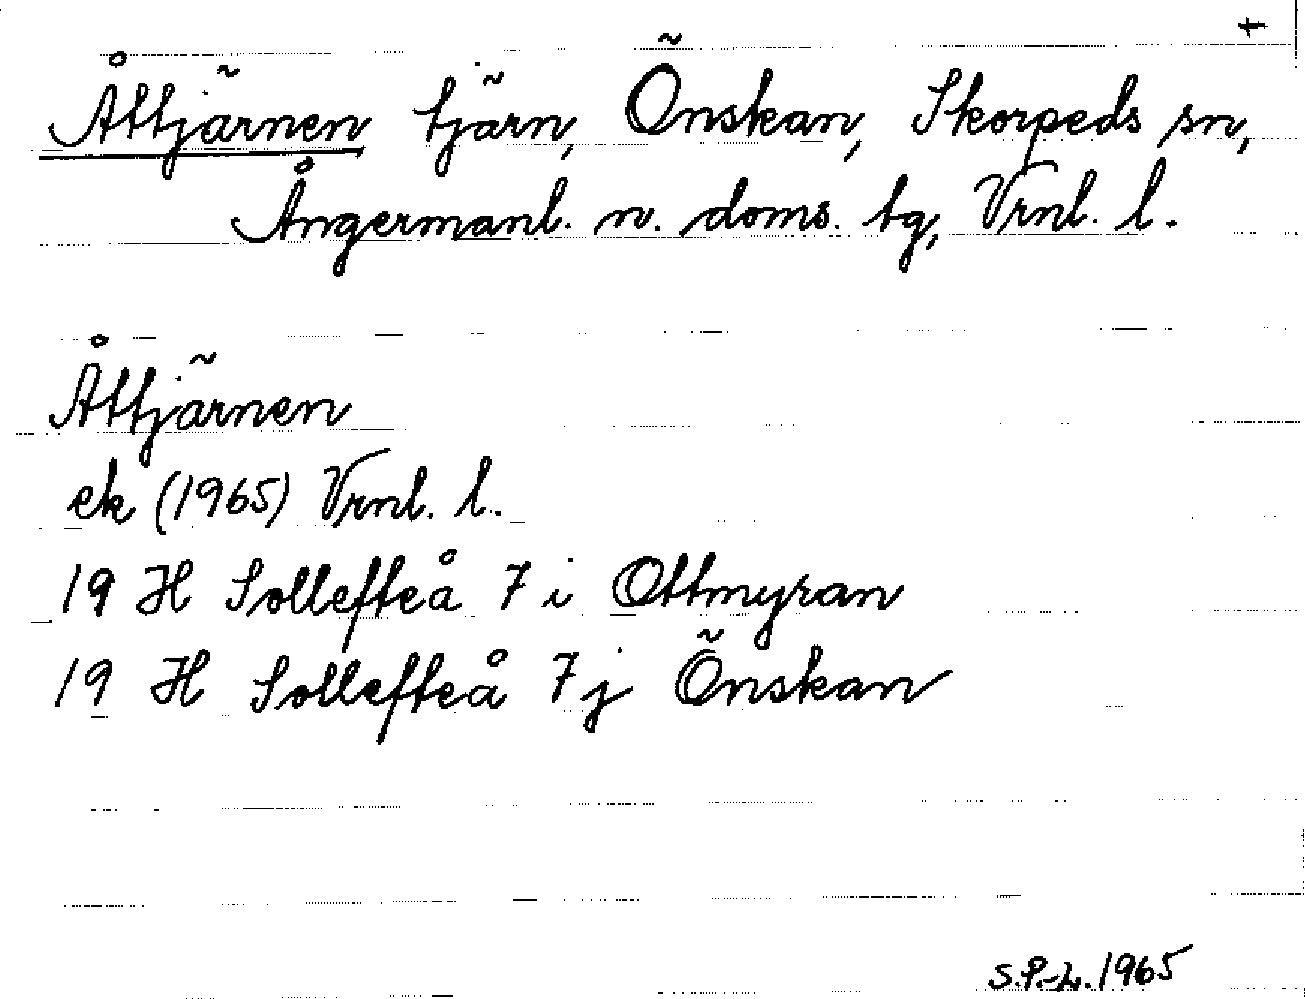 +
Åttjärnen tjärn, Önskan, Skorpeds sn,
Ångermanl. n. doms. tg, Vrnl. l.
Åttjärnen
ek (1965) Vrnl. l.
19 H Sollefteå 7 i Ottmyran
19 H Sollefteå 7 j Önskan
S.P.-L. 1965